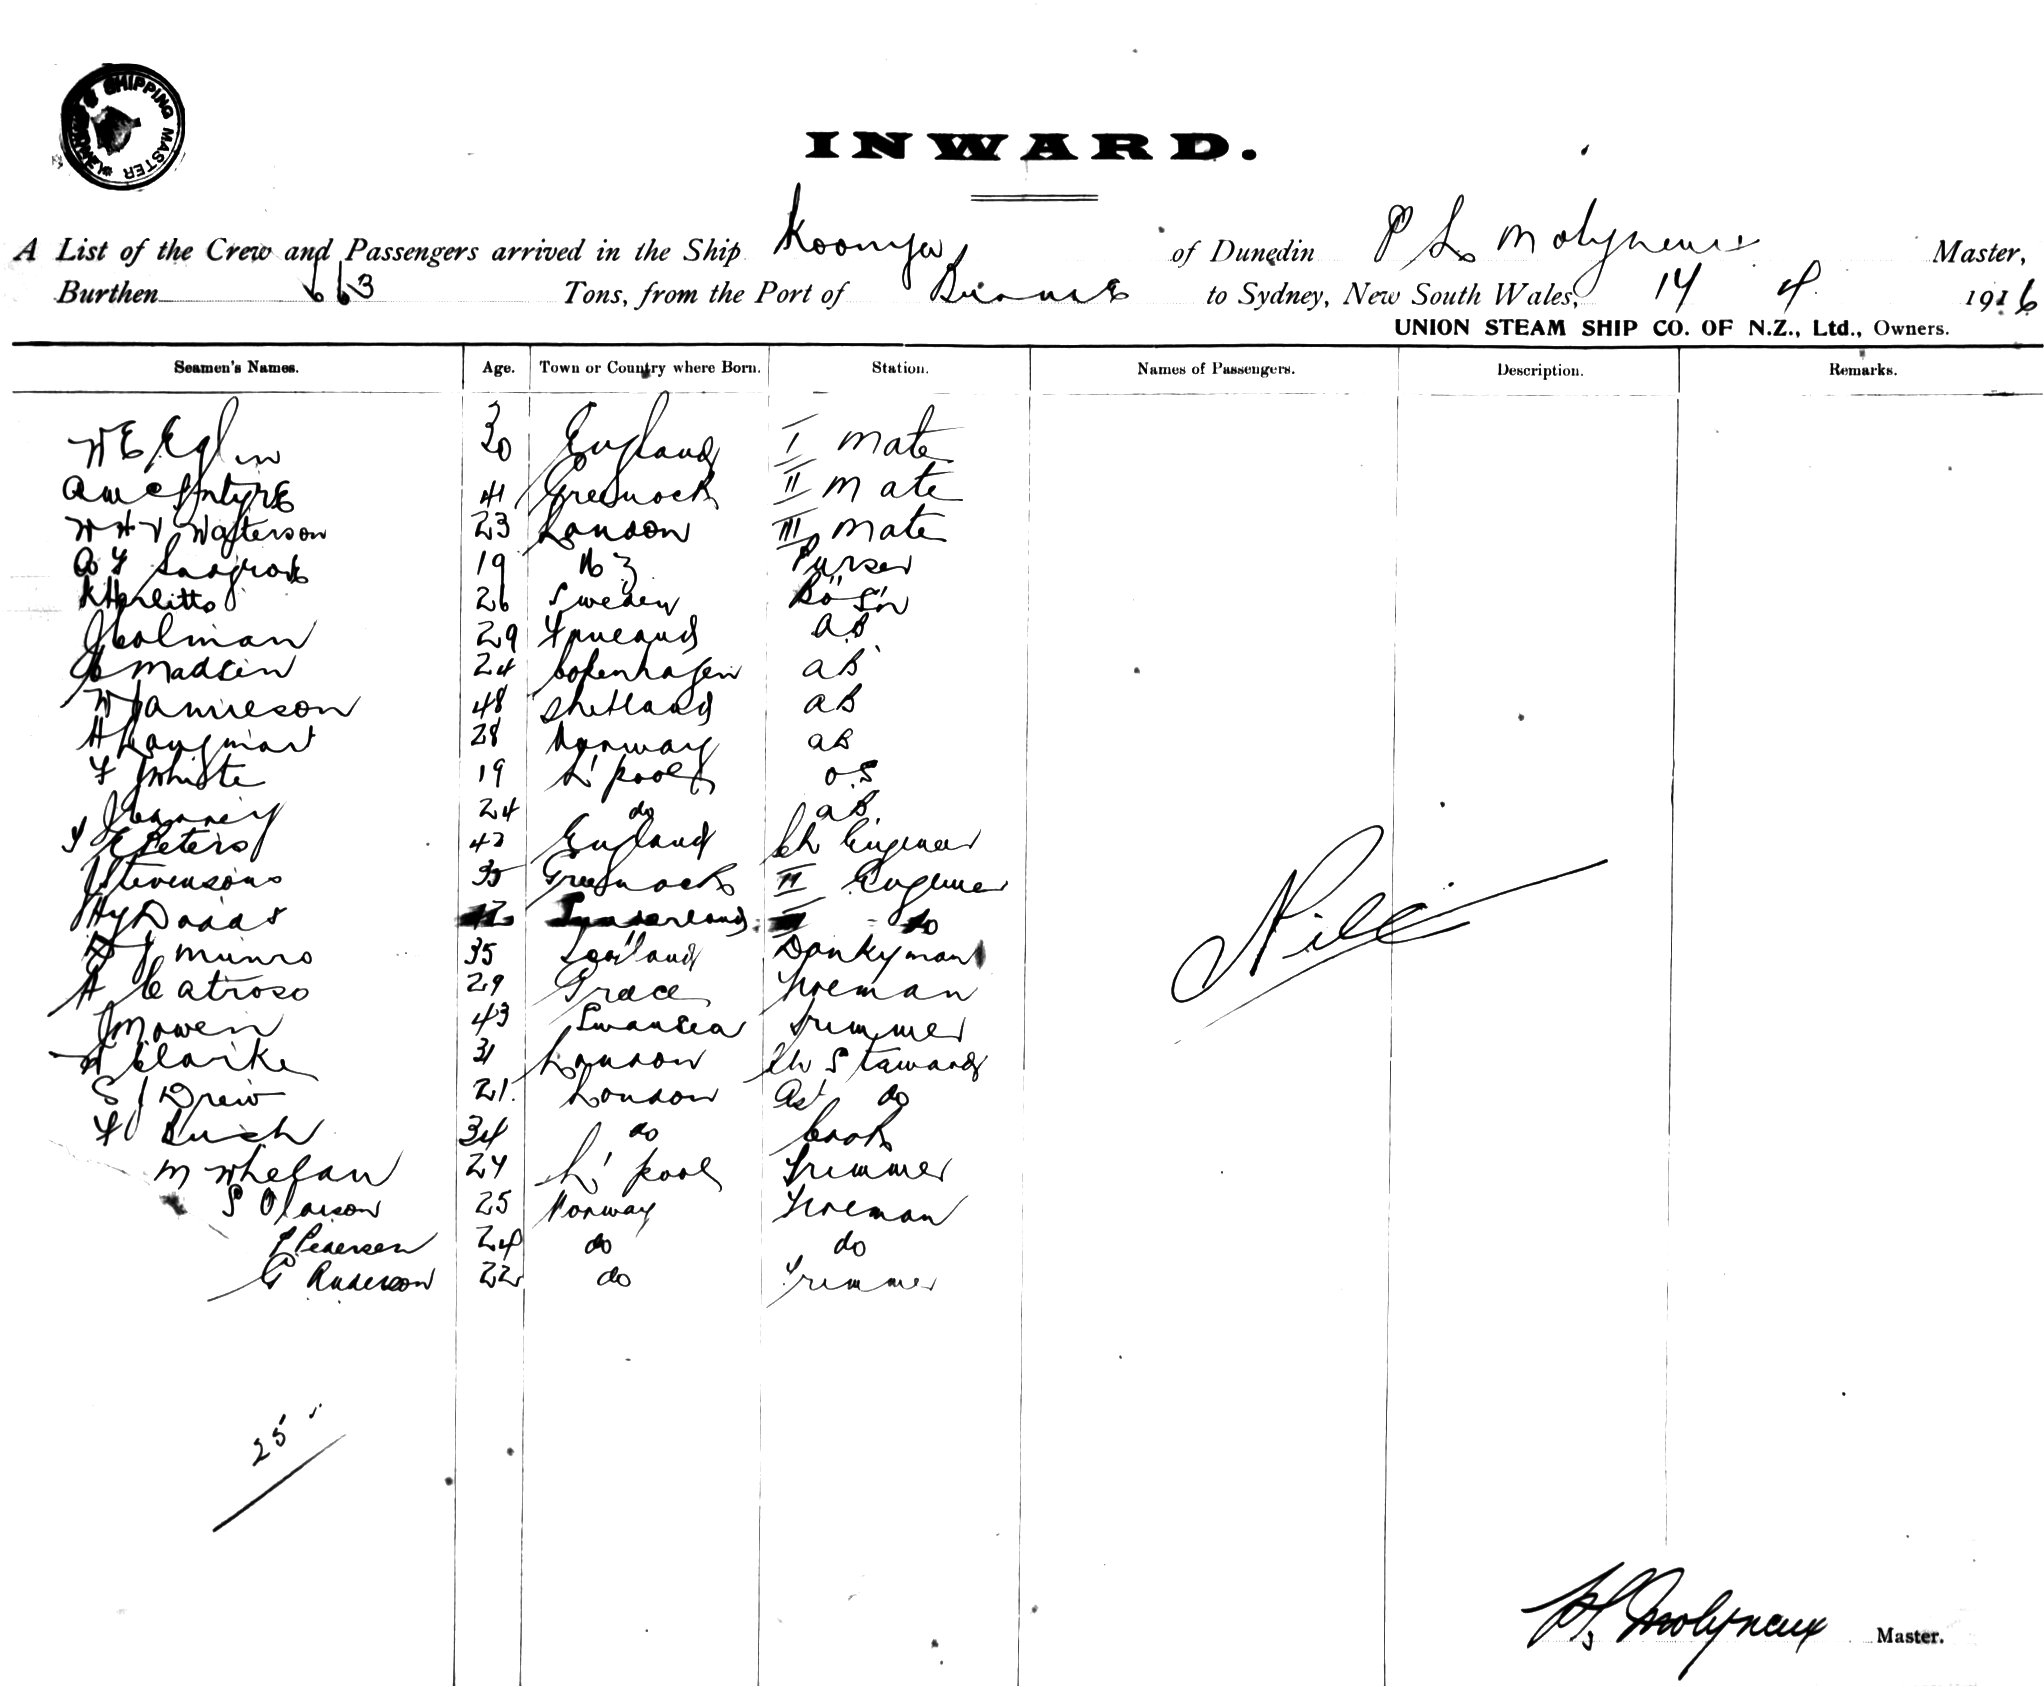 SHIPPING MASTER
INWARD.
A List of the Crew and Passengers arrived in the Ship Koonya of Dunedin P L Molyneux Master,
Burthen 663 Tons, from the Port of to Sydney, New South Wales, 14 4 1916
UNION STEAM SHIP CO. OF N.Z., Ltd., Owners.
Seamen's Names. Age. Town or Country where Born. Station. Names of Passengers. Description. Remarks.
W E Eglin 30 England I Mate
A McIntyre 41 Greenock II Mate
W H V Watterson 23 London III Mate
A F 19 NZ Purser
K 26 Sweden Bo's'n
J Colman 29 AB
C Madsen 24 Copenhagen AB
W Jamieson 48 Shetland AB
H 28 Norway AB
F White 19 L'pool OS
24 do AB
E Peters England Ch Engineer
J Stevenson 35 Greenock II Engineer
Hy Sunderland do
D J Munro 35 Scotland Donkyman
A Catroso 29 Fireman
J Mowen 43 Swansea Trimmer
Clarke 31 London Ch Steward
S J Drew 21. London As' do
F 34 do Cook
M Whelan 24 L'pool Trimmer
S Olaison 25 Norway Fireman
P Pedersen 24 do do
G Anderson 22 do Trimmer
Nil
25
P L Molyneux Master.